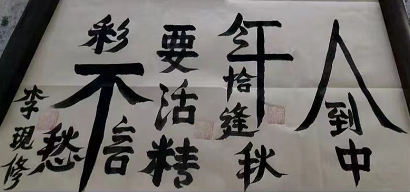 人到中
年恰逢秋
要活精
彩不言愁
李現修